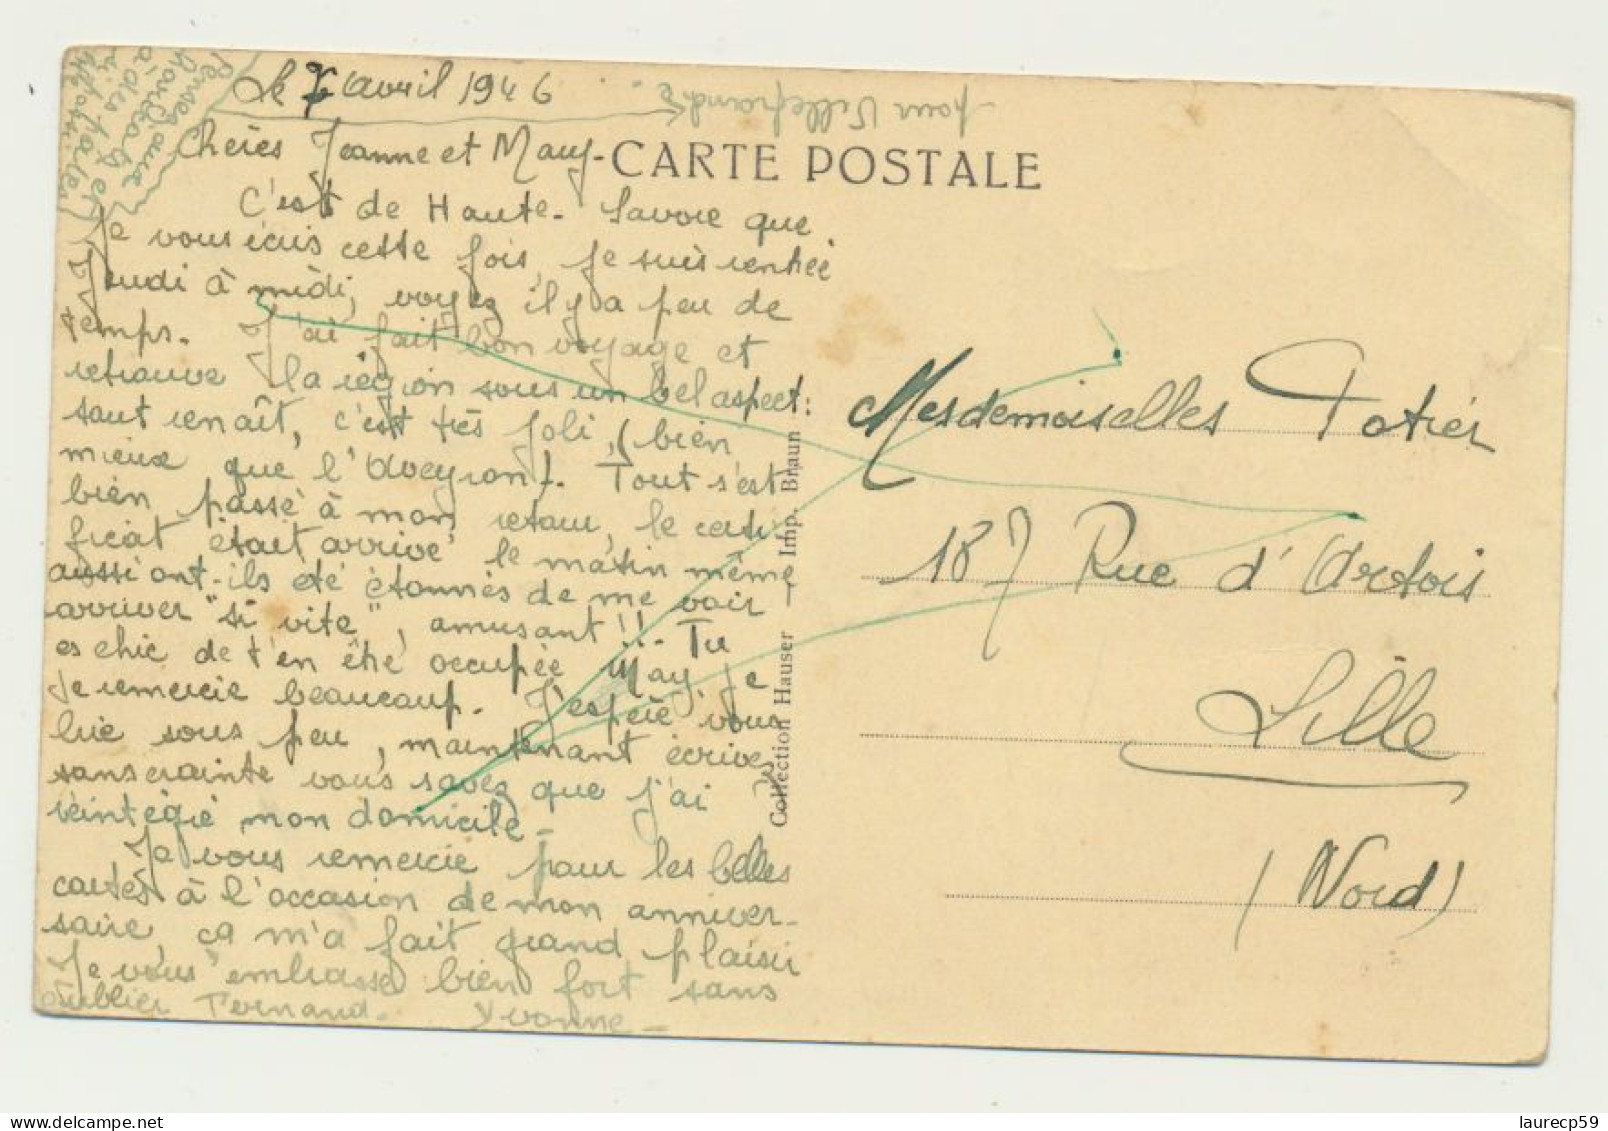 Le 7 Avril 1946
pour Villefranche
Pensez aux
à des
CARTE POSTALE
Chères Jeanne et May -
C'est de Haute-Savoie que
je vous écris cette fois, je suis rentrée
Jeudi à midi, voyez il y a peu de
temps. J'ai fait bon voyage et
retrouve la région sous un bel aspect :
tout renaît, c'est très joli, (bien
mieux que l'Aveyron). Tout s'est
bien passé à mon retour, le certi
ficat était arrivé le matin même
aussi ont-ils été étonnés de me voir
arriver "si vite", amusant !!. Tu
es chic de t'en être occupée May, je
te remercie beaucoup. J'espère vous
lire sous peu, maintenant écrivez
sans crainte vous savez que j'ai
réintégré mon domicile -
Je vous remercie pour les belles
cartes à l'occasion de mon anniver-
saire, ça m'a fait grand plaisir
Je vous embrasse bien fort sans
oublier Fernand. Yvonne -
Collection Hauser — Imp. Braun
Mesdemoiselles Potier
187 Rue d'Artois
Lille
(Nord)
laurecp59